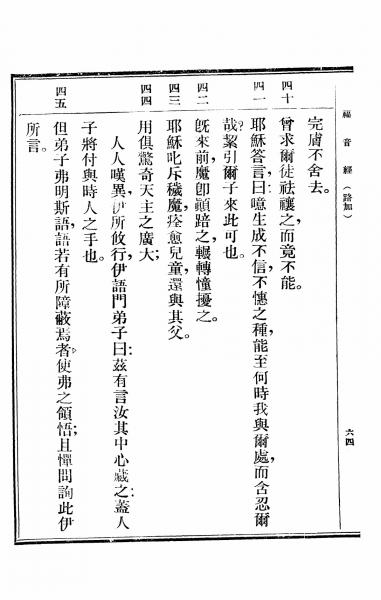 福音經（路加）
六四
完膚不舍去。
四十
曾求爾徒祛禳之而竟不能。
四一
耶穌答言：曰噫生成不信，不憓之種，能至何時我與爾處，而含忍爾
哉？挈引爾子來此可也。
四二
旣來前，魔卽顚踣之，輾轉憧擾之。
四三
耶穌叱斥穢魔，痊愈兒童，還與其父。
四四
用俱驚奇天主之廣大；
人人嘆異，伊所攸行，伊語門弟子曰：茲有言汝其中心藏之：葢人
子將付與時人之手也。
四五
但弟子弗明斯語，語若有所障蔽焉者，使弗之領悟；且憚問詢此伊
所言。